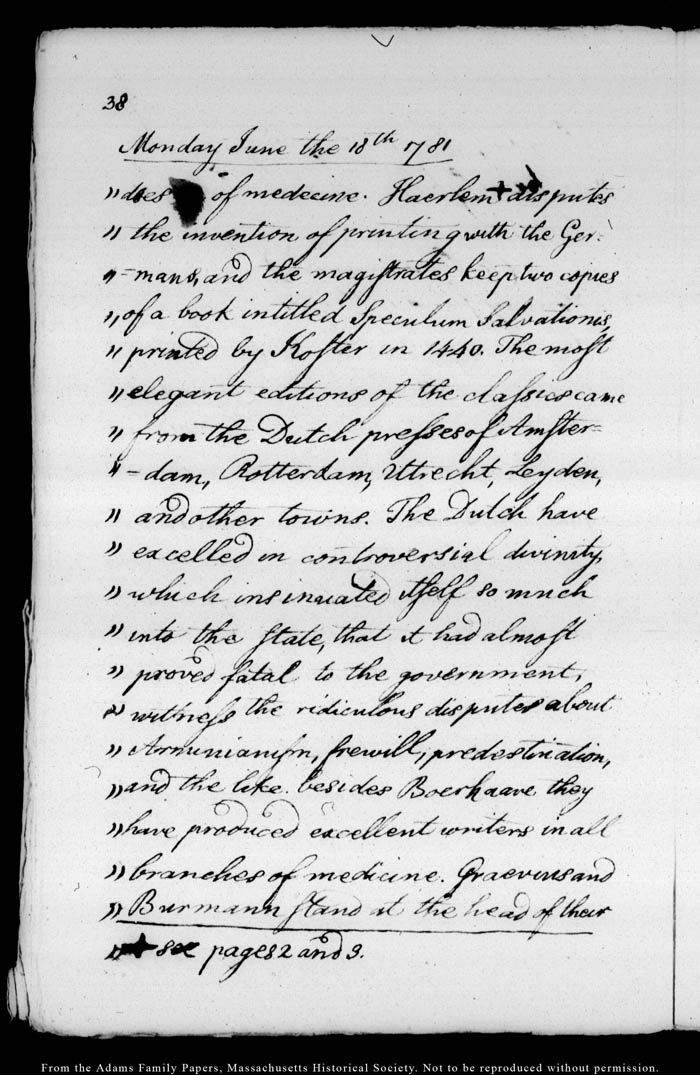 38
Monday June the 18th 1781
" does of medecine. Haerlem + disputes
" the invention of printing with the Ger=
" -mans, and the magistrates keep two copies
" of a book intitled Speculum Salvationis,
" printed by Koster in 1440. The most
" elegant editions of the classics came
" from the Dutch presses of Amster=
" -dam, Rotterdam, Utrecht, Leyden,
" and other towns. The Dutch have
" excelled in controversial divinity,
" which insinuated itself so much
" into the state, that it had almost
" proved fatal to the government,
" witness the ridiculous disputes about
" Arminianism, frewill, predestination,
" and the like. besides Boerhaave they
" have produced excellent writers in all
" branches of medicine. Graevius and
" Burmann stand at the head of their
" + see pages 2 and 3.
From the Adams Family Papers, Massachusetts Historical Society. Not to be reproduced without permission.